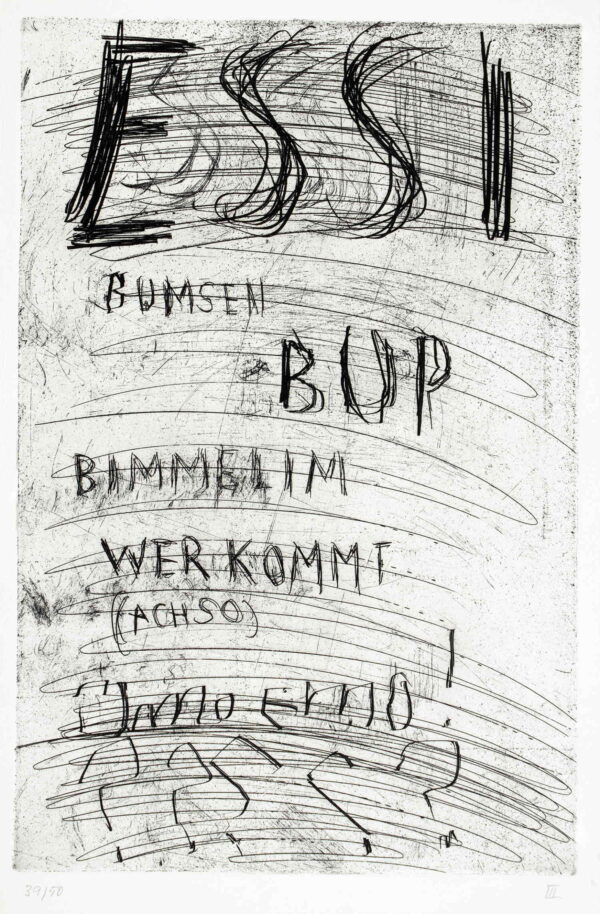 ESSI
BUMSEN
BUP
BIMMELIM
WER KOMMT
(ACHSO)
39/50 III